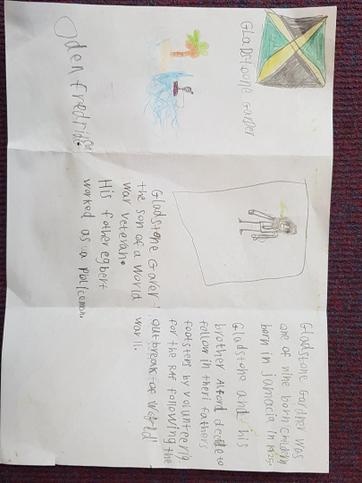 GLaDStoone Garder
Oden
Gladstone Gardner was
one of nine born children
born in jamacia in
Gladstone and his
brother Alford decde to
follow in theri fathers
footsters by volunteering
for the RAF following the
outbreak of world
war 11.
Gladstone Garer
the son of a world
war veteran.
His father egbert
worked as a